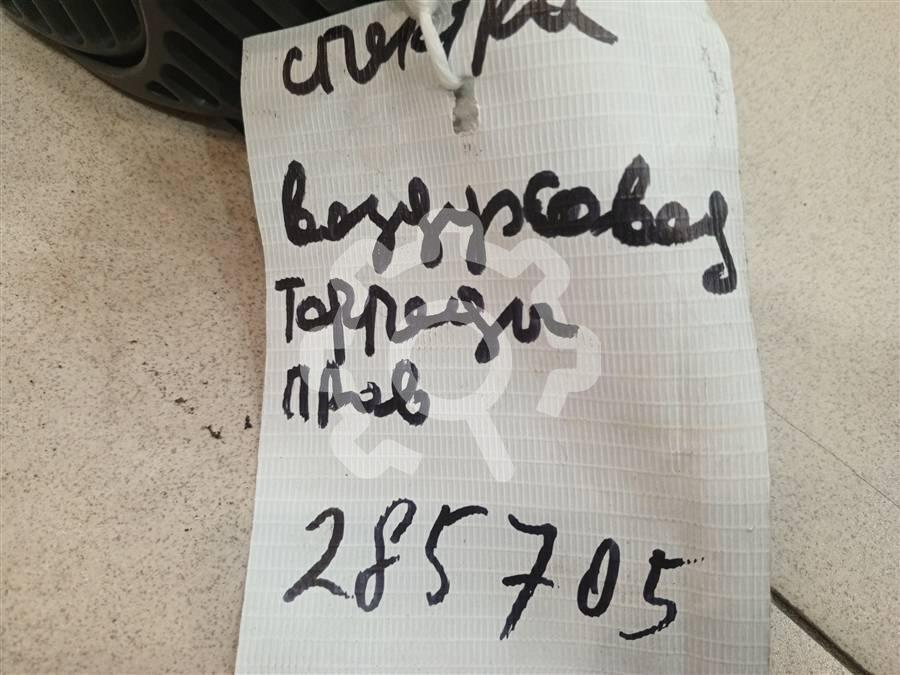 спектра
воздуховод
торпеды
прав
285705